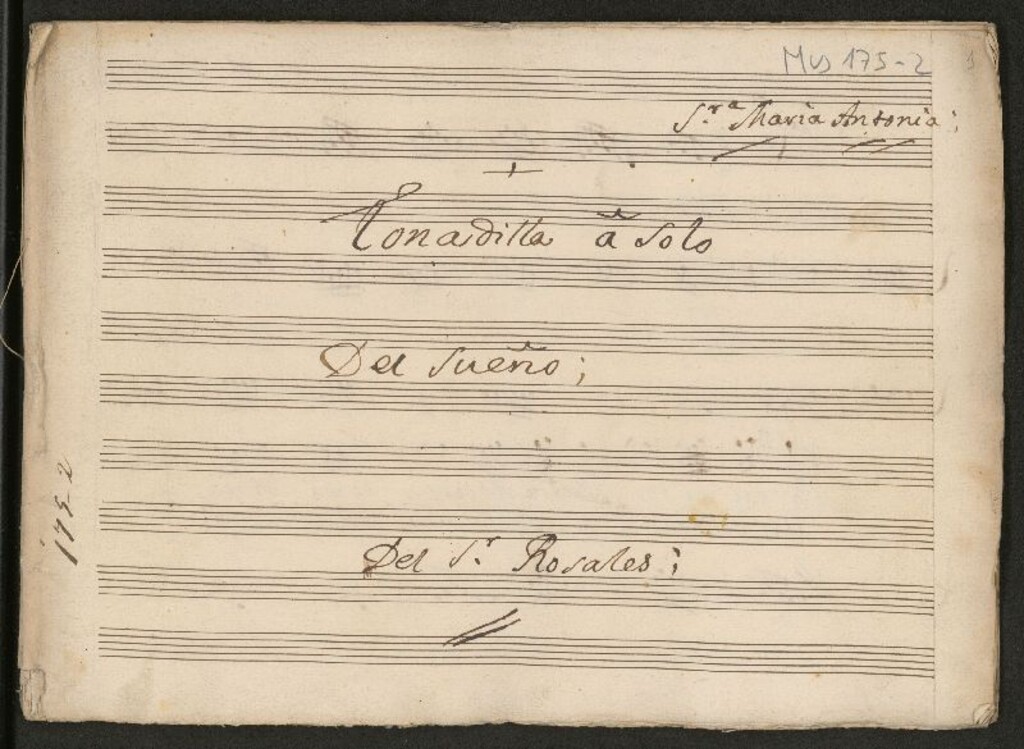 Mus 175-2
1
S.ra Maria Antonia;
Tonadilla â solo
Del sueño;
175-2
Del S.r Rosales;